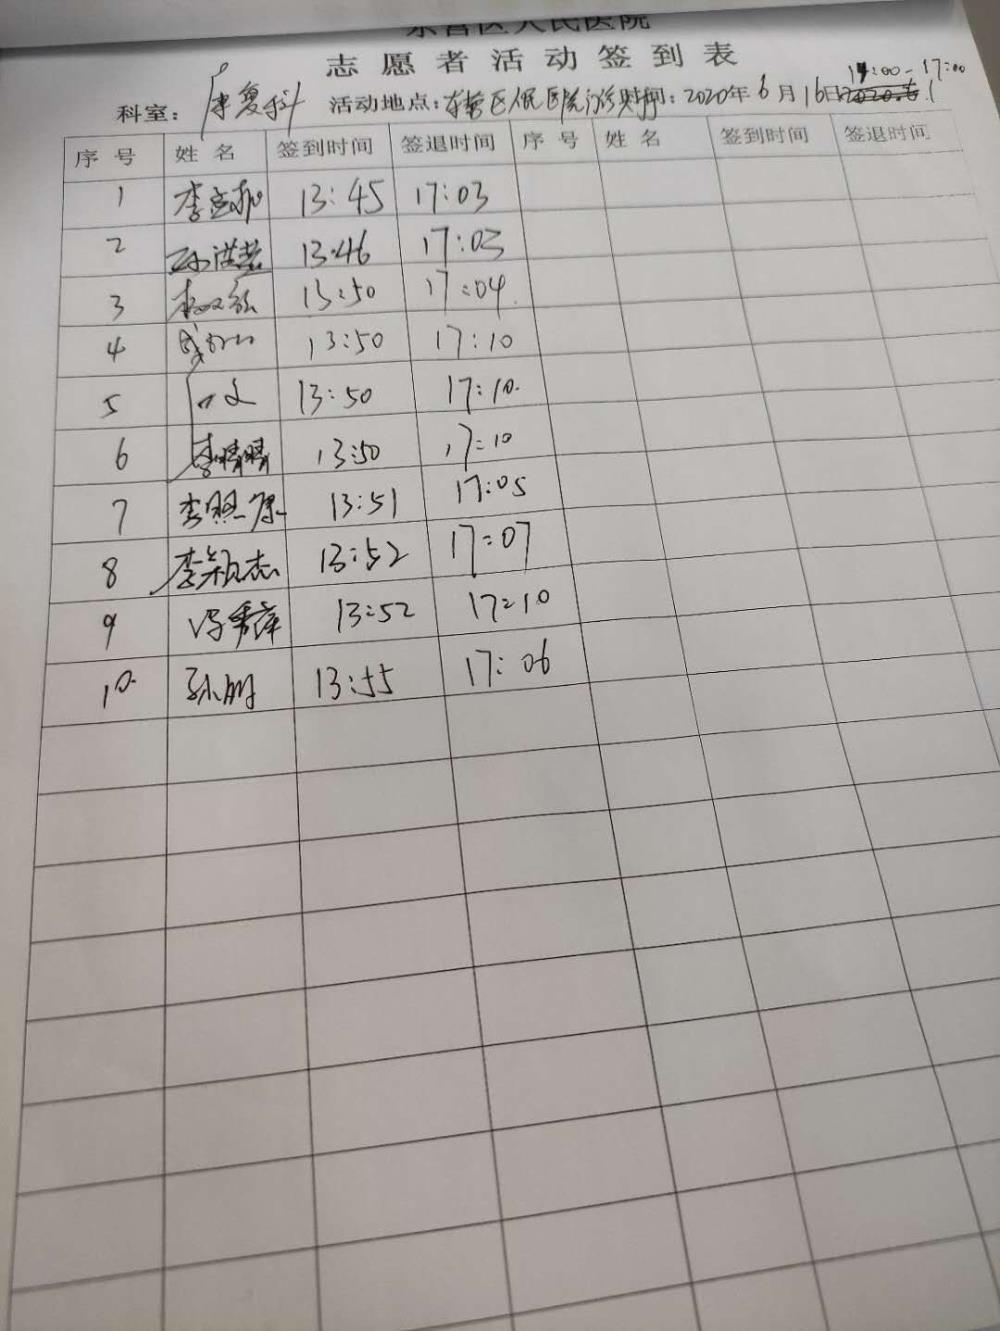 东营区人民医院
志愿者活动签到表
科室：康复科 活动地点：东营区人民医院门诊 时间：2020年6月16日 14:00-17:00
序号 姓名 签到时间 签退时间 序号 姓名 签到时间 签退时间
1 13:45 17:03
2 13:46 17:03
3 13:50 17:04
4 13:50 17:10
5 13:50 17:10
6 李晴晴 13:50 17:10
7 李照康 13:51 17:05
8 李颖杰 13:52 17:07
9 13:52 17:10
10 孙朋 13:55 17:06